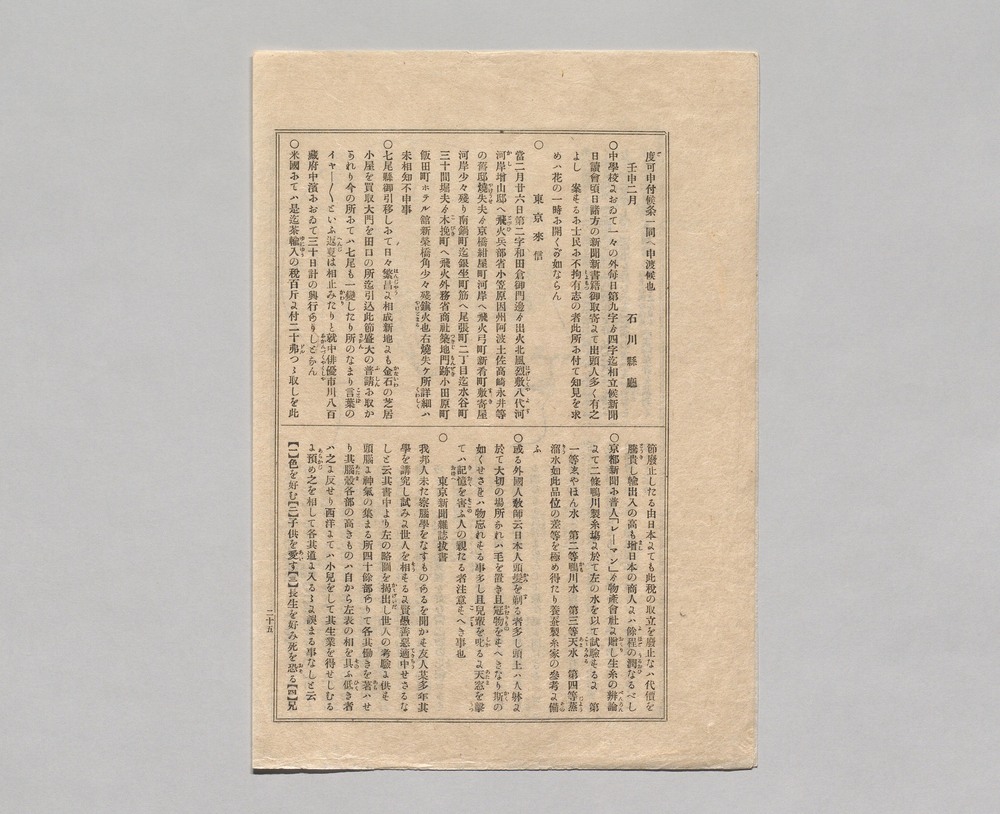 度可申付候条一同へ申渡候也
壬申二月　　石川縣廳
〇中學校よおゐて一々の外每日第九字ゟ四字迄相立候新聞
日讀會頃日諸方の新聞新書籍御取寄よて出頭人多く有之
よし　案そるふ士民ふ不拘有志の者此所ふ付て知見を求
めハ花の一時ふ開くるの如ならん
〇　東京來信
當二月廿六日第二字和田倉御門邊ゟ出火北風烈敷八代河
河岸增山邸へ飛火兵部省小笠原因州阿波土佐高崎永井等
の舊邸燒失夫ゟ京橋紺屋町河岸へ飛火弓町新肴町敷寄屋
河岸少々殘り南鍋町迄銀坐町筋へ尾張町二丁目迄水谷町
三十間堀夫ゟ木挽町へ飛火外務省商社築地門跡小田原町
飯田町ホテル館新榮橋角少々殘鎭火也右燒失ケ所詳細ハ
未相知不申事
〇七尾縣御引移しふて日々繁昌よ相成新地よも金石の芝居
小屋を買取大門を田口の所迄引込此節盛大の普請ふ取か
ゝれり今の所ふてハ七尾も一變したり所のなまり言葉の
イヤ〱〱といふ返夏は相止みたりと就中俳優市川八百
藏府中濱ふおゐて三十日計の興行ありしとそん
〇米國ふてハ是迄茶輸入の稅百斤よ付二十弗つゝ取しを此
節廢止したる由日本よても此稅の取立を廢止なハ代價を
騰貴し輸出入の高も增日本の商人よハ餘程の潤なるべし
〇京都新聞ふ普人「レーマン」ゟ物產會社よ贈し生糸の辨論
よて二條鴨川製糸塲よ於て左の水を以て試驗そるよ　第
一等ゑやほん水　第二等鴨川水　第三等天水　第四等蒸
溜水如此品位の差等を極め得たり養蚕製糸家の參考よ備
ふ
〇或る外國人敎師云日本人頭髮を剃る者多し頭上ハ人躰よ
於て大切の塲所ふれハ毛を置き且冠物をそへきなり斯の
如くせさきハ物忘れそる事多し且兒輩を叱るよ天窓を擊
てハ記憶を害ふ人の親たる者注意そへき事也
〇　東京新聞雜誌拔書
我邦人未た察腦學をなすものあるを聞かそ友人某多年其
學を講究し試みよ世人を相そるよ賢愚善惡適中せさるな
しと云其書中より左の略圖を揭出し世人の考驗よ供そ
頭腦よ神氣の集まる所四十餘部ありて各其働きを著ハせ
り其腦殼各部の高きものハ自から左表の相を具ふ低き者
ハ之よ反せり西洋よてハ小兒をして其生業を得せしむる
よ預め之を相して各其道よ入るゝよ誤まる事なしと云
【一】色を好む【二】子供を愛す【三】長生を好み死を恐る【四】兄
二十五